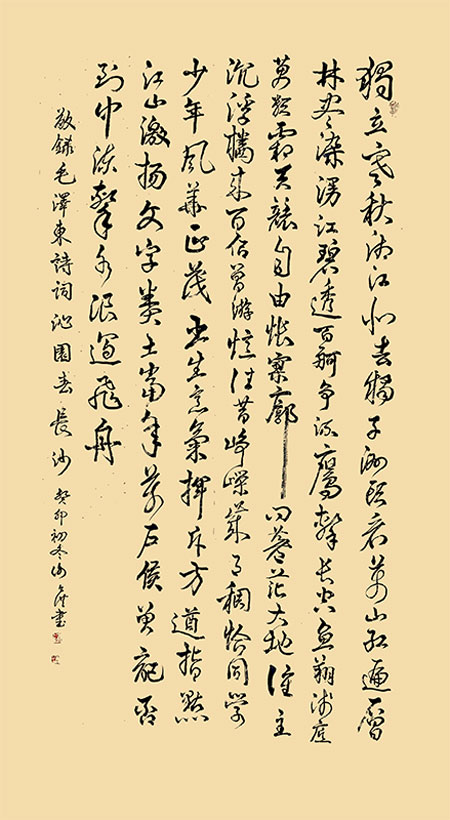 獨立寒秋湘江北去橘子洲頭看萬山紅遍層
林盡染漫江碧透百舸爭流鷹擊長空魚翔淺底
萬類霜天競自由悵寥廓問蒼茫大地誰主
沉浮攜來百侶曾游憶往昔崢嶸歲月稠恰同學
少年風華正茂書生意氣揮斥方遒指點
江山激揚文字糞土當年萬戶侯曾記否
到中流擊水浪遏飛舟
敬錄毛澤東詩詞沁園春長沙 癸卯初冬 書